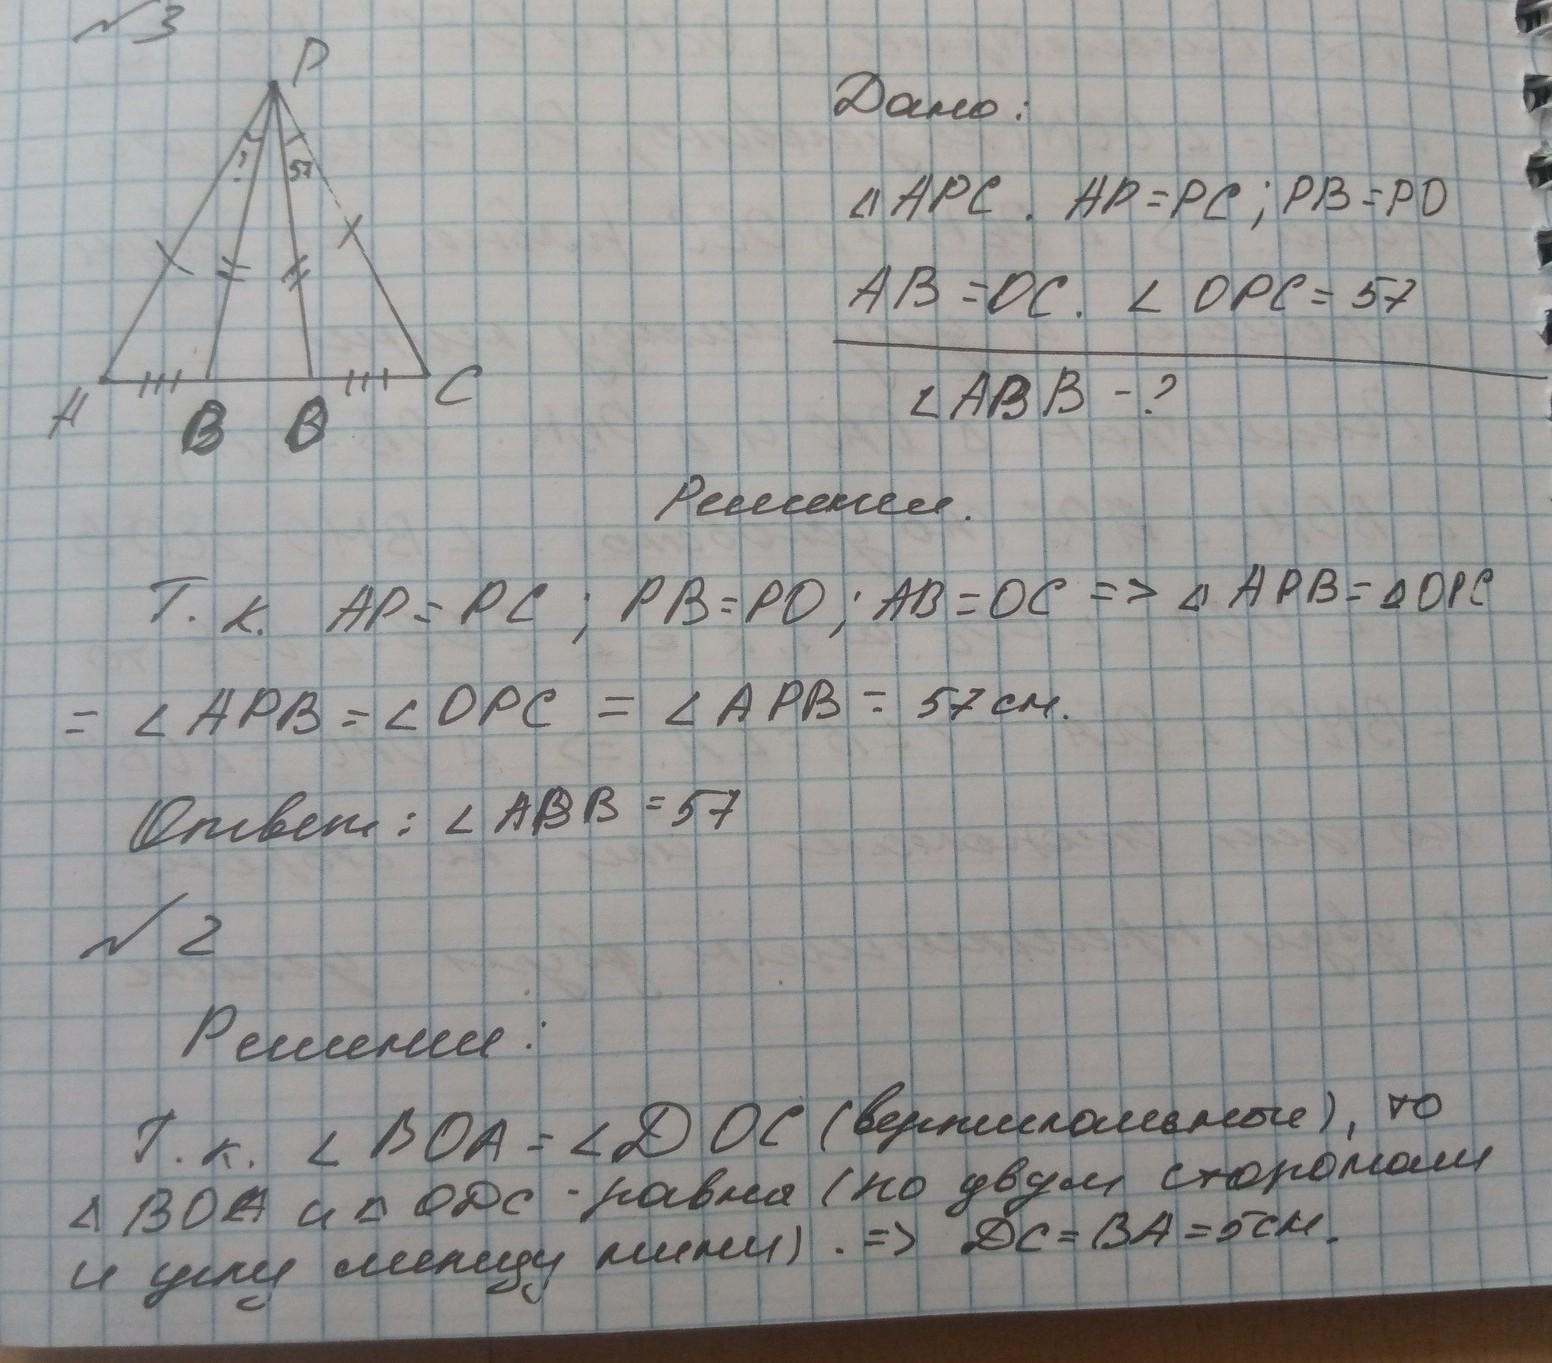 №3
P
? 57
A B O C
Дано:
△ APC. AP=PC; PB=PO
AB=OC. ∠ OPC=57
∠ABB -?
Решение.
Т. к. AP=PC; PB=PO; AB=OC => △ APB=△OPC
= ∠ APB=∠OPC = ∠APB = 57см.
Ответ: ∠ABB =57
№2
Решение:
Т. к. ∠BOA=∠DOC (вертикальные), то
△ BOA и △ ODC - равна (по двум сторонам
и углу между ними). => DC=BA=5см.